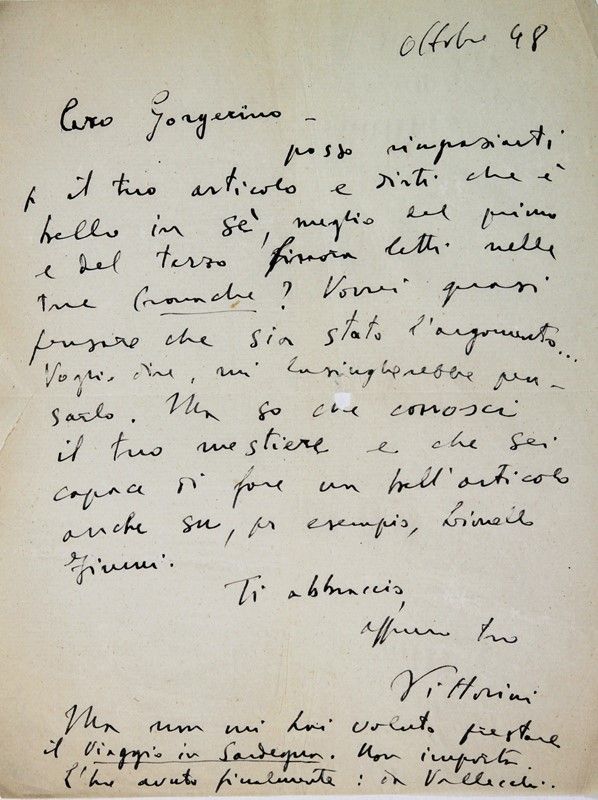 Ottobre 48
Caro Gorgerino –
posso ringraziarti
x il tuo articolo e dirti che è
bello in sé, meglio del primo
e del terzo finora letti nelle
tue Cronache? Vorrei quasi
pensare che sia stato l'argomento...
Voglio dire, mi lusingherebbe pen-
sarlo. Ma so che conosci
il tuo mestiere e che sei
capace di fare un bell'articolo
anche su, per esempio, Lionello
Fiumi.
Ti abbraccio,
affmo tuo
Vittorini
Ma non mi hai voluto prestare
il Viaggio in Sardegna. Non importa.
L'ho avuto finalmente: da Vallecchi..